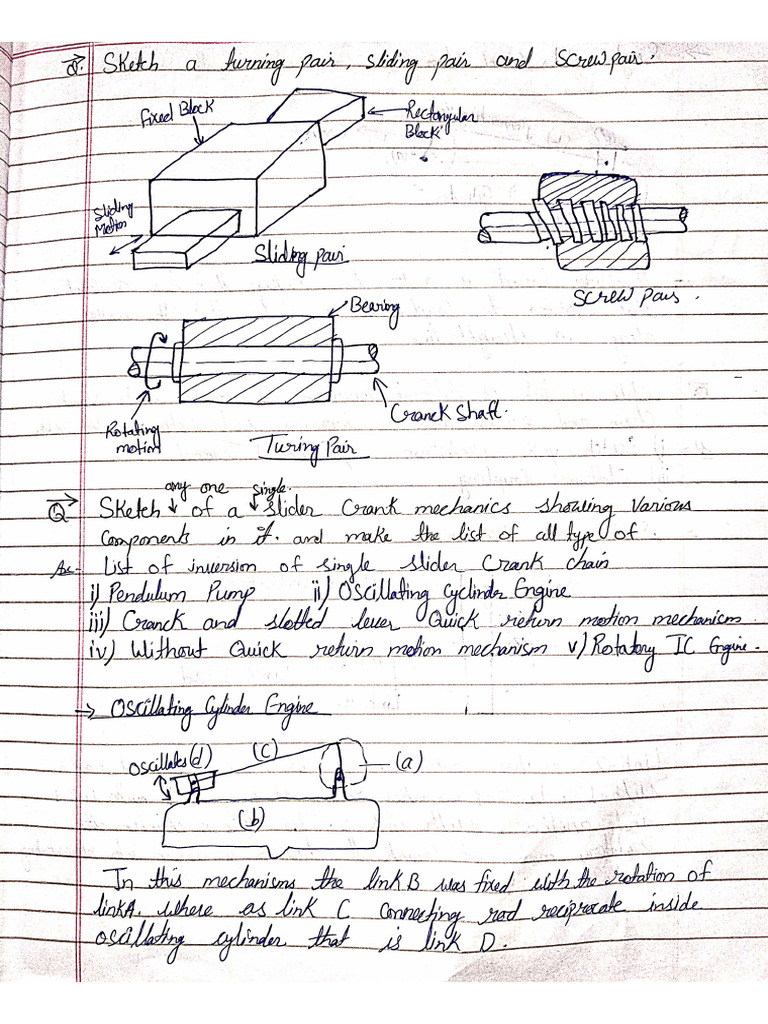 Q. Sketch a turning pair, sliding pair and screwpair.
Fixed Block
Rectangular
Block
Sliding
Motion
Sliding pair
Screw pair.
Bearing
Rotating
motion
Cranck Shaft.
Turing Pair
any one single.
Q Sketch of a slider Crank mechanics showing various
components in it. and make the list of all type of.
As- List of inversion of single slider Crank chain
i) Pendulum Pump ii) Oscillating Cyclinder Engine
iii) Cranck and slotted lever Quick return motion mechanism.
iv) Without Quick return motion mechanism v) Rotatory IC Engine.
→ Oscillating Cylinder Engine
Oscillates (d) (C) (a)
(b)
In this mechanisms the link B was fixed with the rotation of
link A. where as link C connecting rod reciprocate inside
oscillating cylinder that is link D.